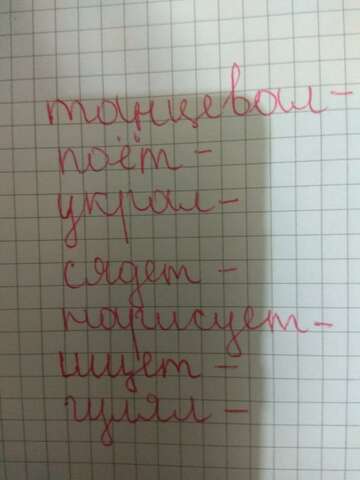 танцевал -
поёт -
украл -
сядет -
нарисует -
ищет -
гулял -